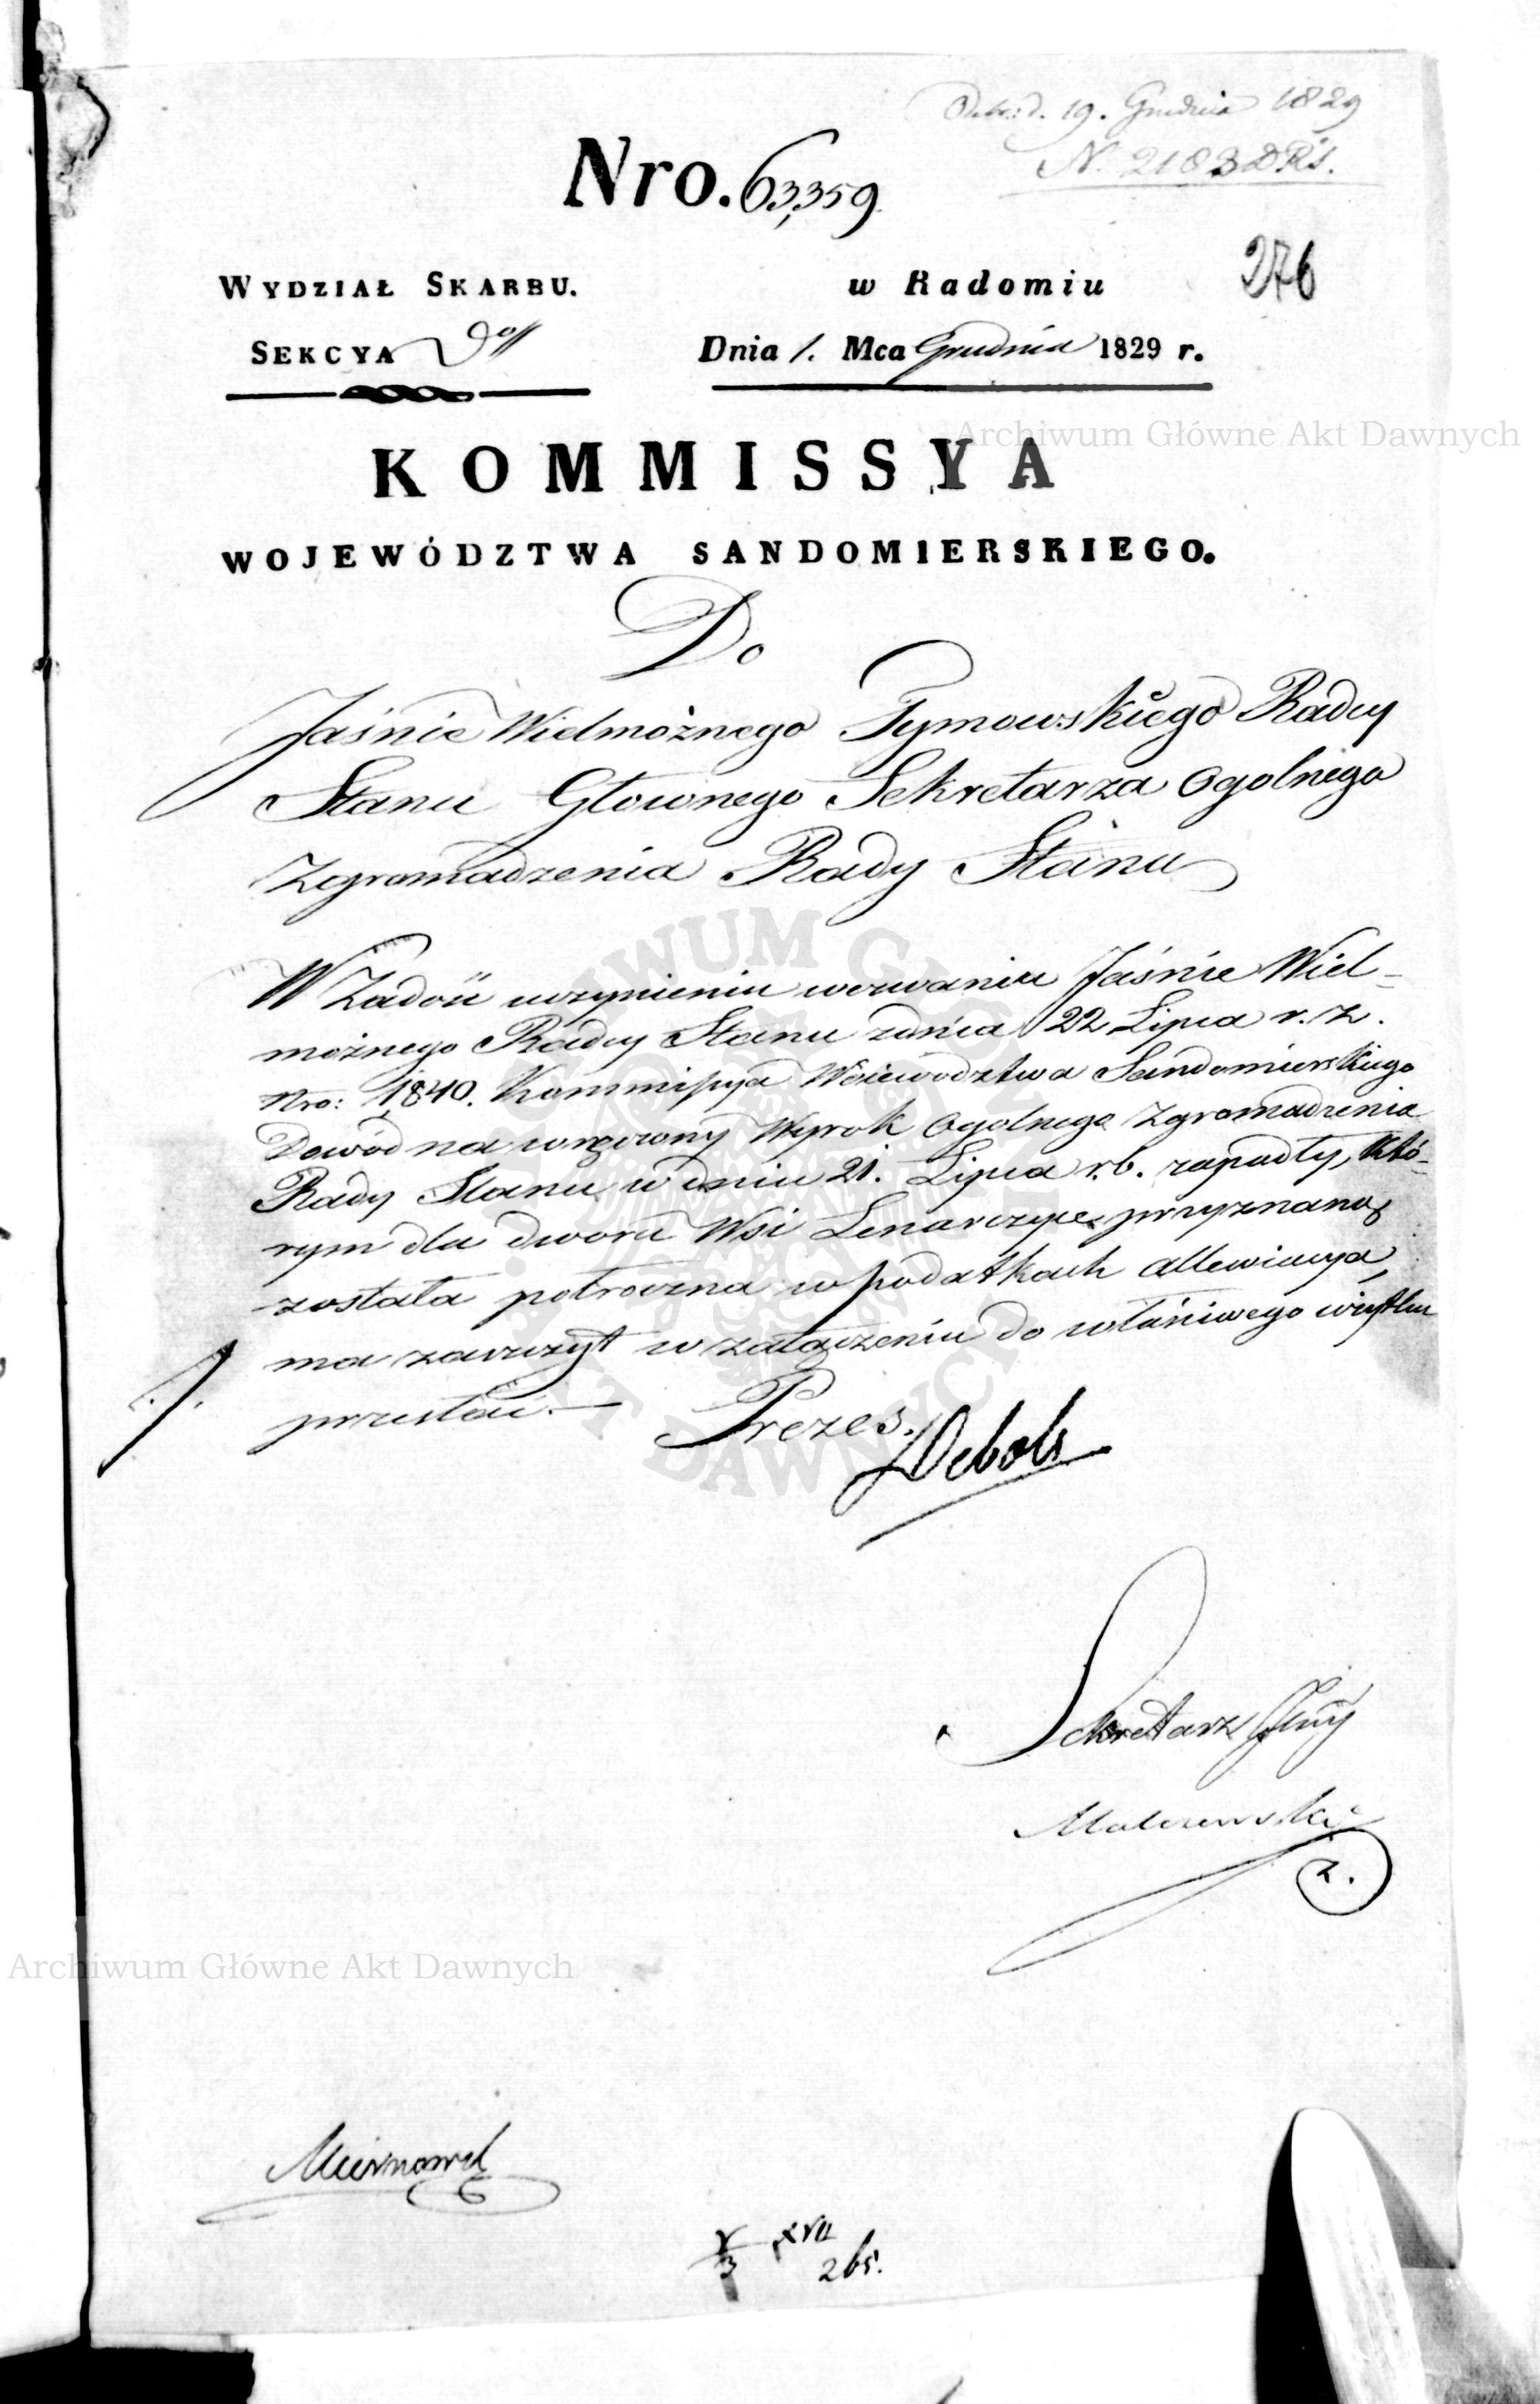 Odebr: d. 19. Grudnia 1829
N. 2183 DRS.
Nro. 63,359
276
WYDZIAŁ SKARBU.
w Radomiu
SEKCYA
Dnia 1. Mca Grudnia 1829 r.
KOMMISSYA
WOJEWÓDZTWA SANDOMIERSKIEGO.
Do
Jaśnie Wielmożnego Tymowskiego Radcy
Stanu Głownego Sekretarza Ogolnego
Zgromadzenia Rady Stanu
W Zadość uczynieniu wezwaniu Jaśnie Wiel-
możnego Radcy Stanu zdnia 22 Lipca r. z.
Nro: 1,840. Kommissya Woiewodztwa Sandomierskiego
Dowód na wręczony Wyrok Ogolnego Zgromadzenia
Rady Stanu w dniu 21. Lipca r. b. zapadły, któ-
rym dla dworu Wsi Lenarczyce przyznaną
została potroczna w podatkach allewiacya,
ma zaszczyt w załączeniu do właściwego użytku
przesłać. —
Prezes.
Deboli
Sekretarz Jlny
Malczewski
2.
XVII
265.
Archiwum Główne Akt Dawnych
Archiwum Główne Akt Dawnych
ARCHIWUM GŁÓWNE AKT DAWNYCH